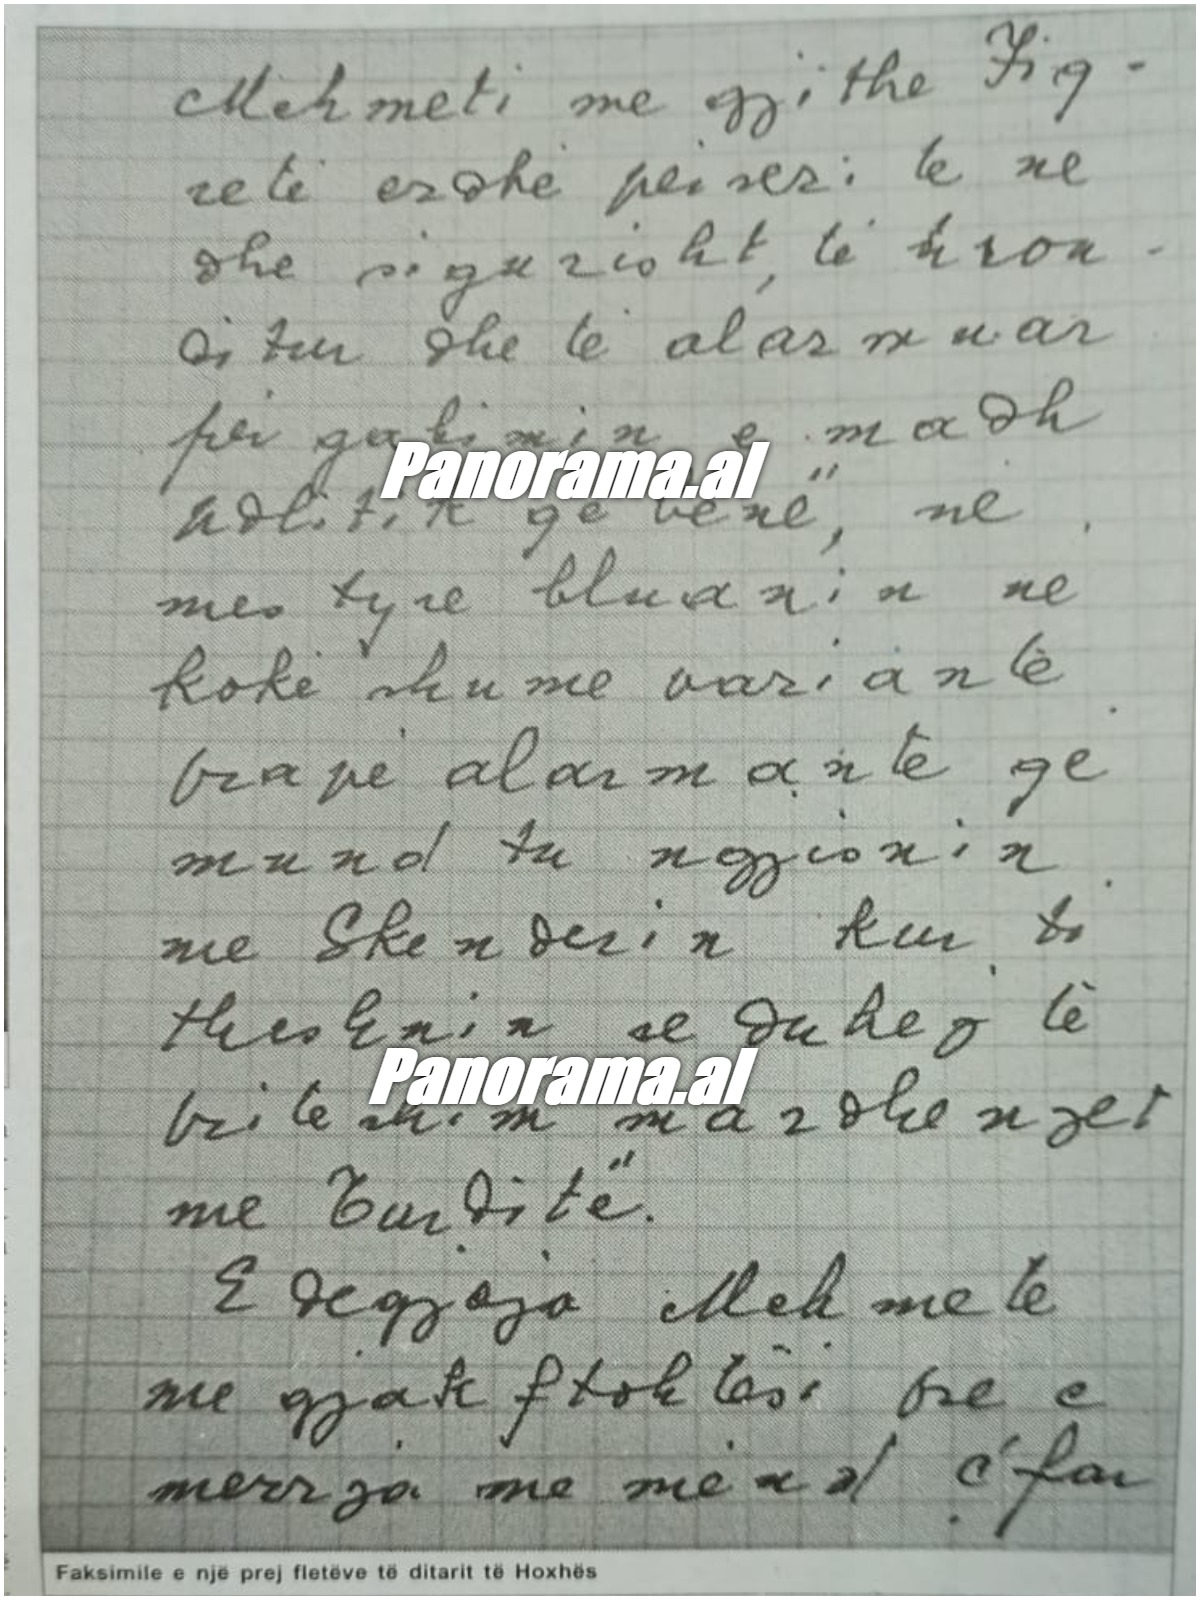 Mehmeti me gjithe Fiq-
retë erdhë përseri te ne
dhe sigurisht, të tron-
ditur dhe të alarmuar
për gabimin e madh
politik që bënë", në
mes tyre bluanin në
kokë shume variantë
prapë alarmantë që
mund tu ngjisnin
me Skenderin kur ti
theshnin se duhej të
priteshim mardhenjet
me Turditë".
E degjoja Mehmetë
me gjak ftohtësi pse e
merrja me mënd ç'far
Panorama.al
Panorama.al
Faksimile e një prej fletëve të ditarit të Hoxhës